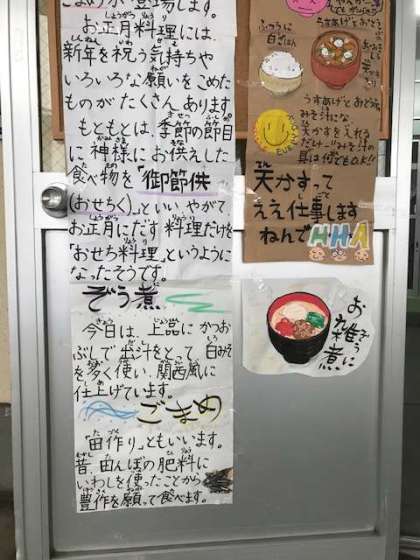 ごまめが登場します。
お正月料理には、
新年を祝う気持ちや
いろいろな願いをこめた
ものがたくさんあります
もともとは、季節の節目
に神様にお供えした
食べ物を「御節供
(おせちく)」といい、やがて、
お正月にだす料理だけを
「おせち料理」というように
なったそうです。
ぞう煮
今日は、上品にかつお
ぶしで出汁をとって、白みそ
を多く使い、関西風に
仕上げています。
ごまめ
「田作り」ともいいます。
昔、田んぼの肥料に
いわしを使ったことから
豊作を願って食べます。
うすあげとおとうふ
ふつうに
白ごはん
うすあげとおとうふの
みそ汁にな、
天かすを入れる
だけ
みそ汁の
具は何でもO.K!!
天かすって
ええ仕事します
ねんでHHA
お雑煮
ぞうに